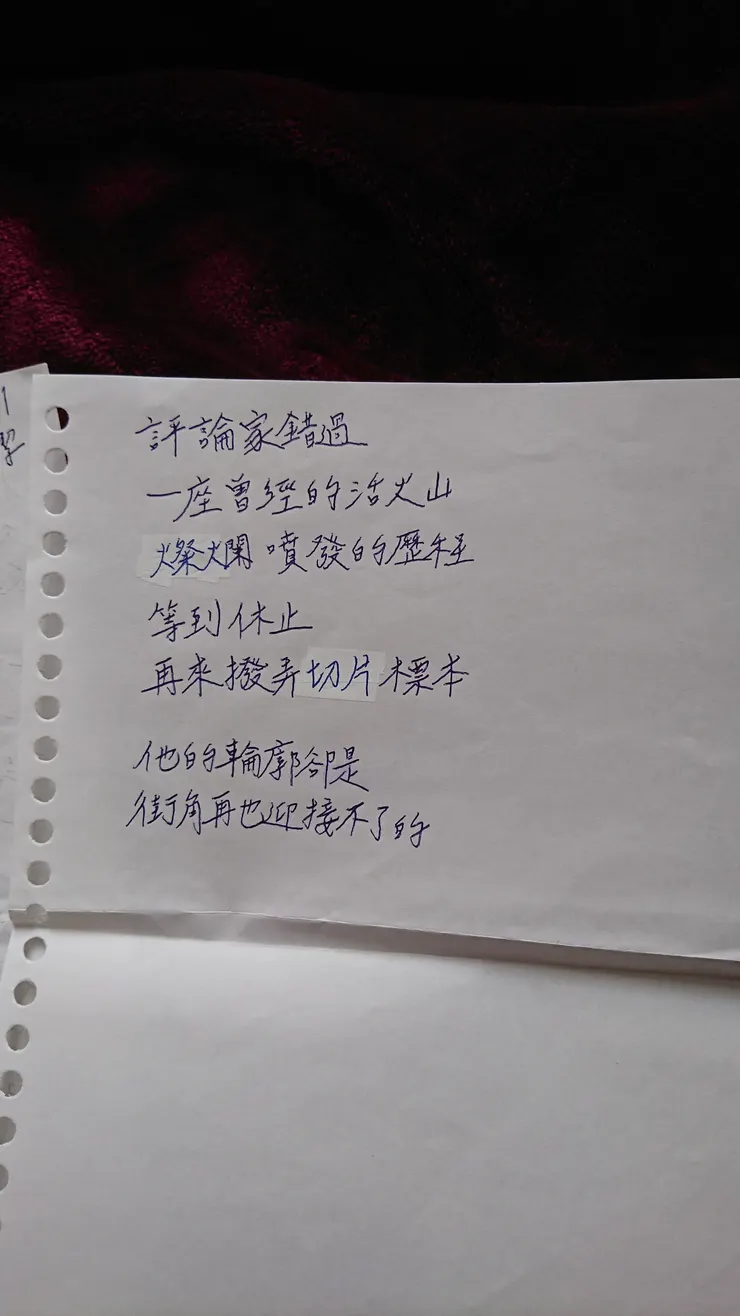 評論家錯過
一座曾經的活火山
燦爛噴發的歷程
等到休止
再來撥弄切片標本
他的輪廓卻是
街角再也迎接不了的